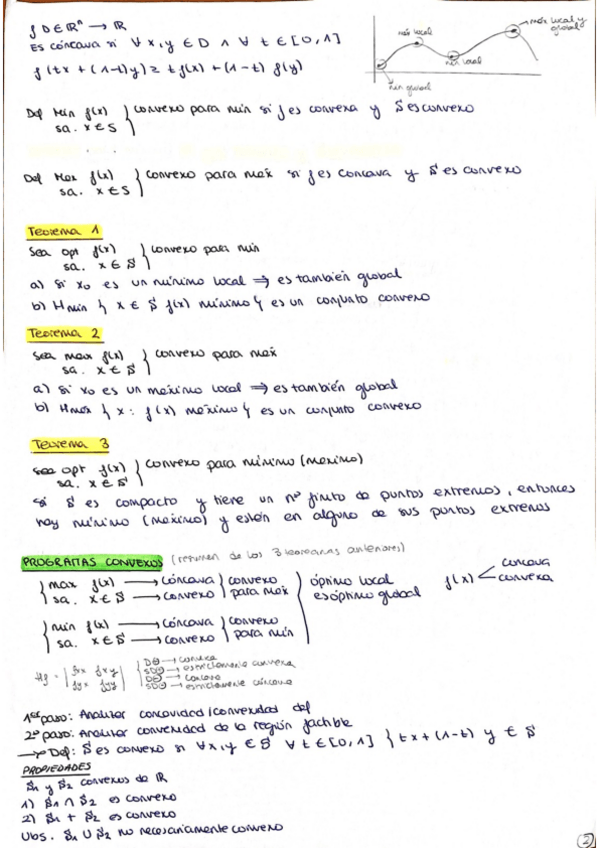 f D∈ℝⁿ → ℝ
Es cóncava si ∀ x,y ∈ D ∧ ∀ t ∈ [0,1]
f(tx + (1-t)y) ≥ t f(x) + (1-t) f(y)
máx local y global
máx local
mín local
mín global
Def Min f(x) } convexo para min si f es convexa y S es convexo
sa. x ∈ S
Def Max f(x) } convexo para max si f es concava y S es convexo
sa. x ∈ S
Teorema 1
Sea opt f(x) } convexo para min
sa. x ∈ S
a) Si x₀ es un mínimo local ⟹ es también global
b) Hmin { x ∈ S f(x) mínimo } es un conjunto convexo
Teorema 2
Sea max f(x) } convexo para max
sa. x ∈ S
a) Si x₀ es un máximo local ⟹ es también global
b) Hmax { x : f(x) máximo } es un conjunto convexo
Teorema 3
Sea opt f(x) } convexo para mínimo (maximo)
sa. x ∈ S
Si S es compacto y tiene un nº finito de puntos extremos, entonces
hay mínimo (máximo) y están en alguno de sus puntos extremos
PROGRAMAS CONVEXOS (resumen de los 3 teoremas anteriores)
{ max f(x) → cóncava } convexo
sa. x ∈ S → convexo } para max
{ min f(x) → cóncava } convexo
sa. x ∈ S → convexo } para min
} óptimo local
es óptimo global
f(x) < concava
convexa
Hf = | fxx fxy |
| fyx fyy |
D⊕ → convexa
SD⊕ → estrictamente convexa
D⊖ → concava
SD⊖ → estrictamente cóncava
1er paso: Analizar concavidad/convexidad def
2º paso: Analizar convexidad de la región factible
→ Def: S es convexo si ∀x,y ∈ S ∀ t ∈ [0,1] } tx + (1-t) y ∈ S
PROPIEDADES
S₁ y S₂ convexos de ℝ
1) S₁ ∩ S₂ es convexo
2) S₁ + S₂ es convexo
Obs. S₁ ∪ S₂ no necesariamente convexo
2